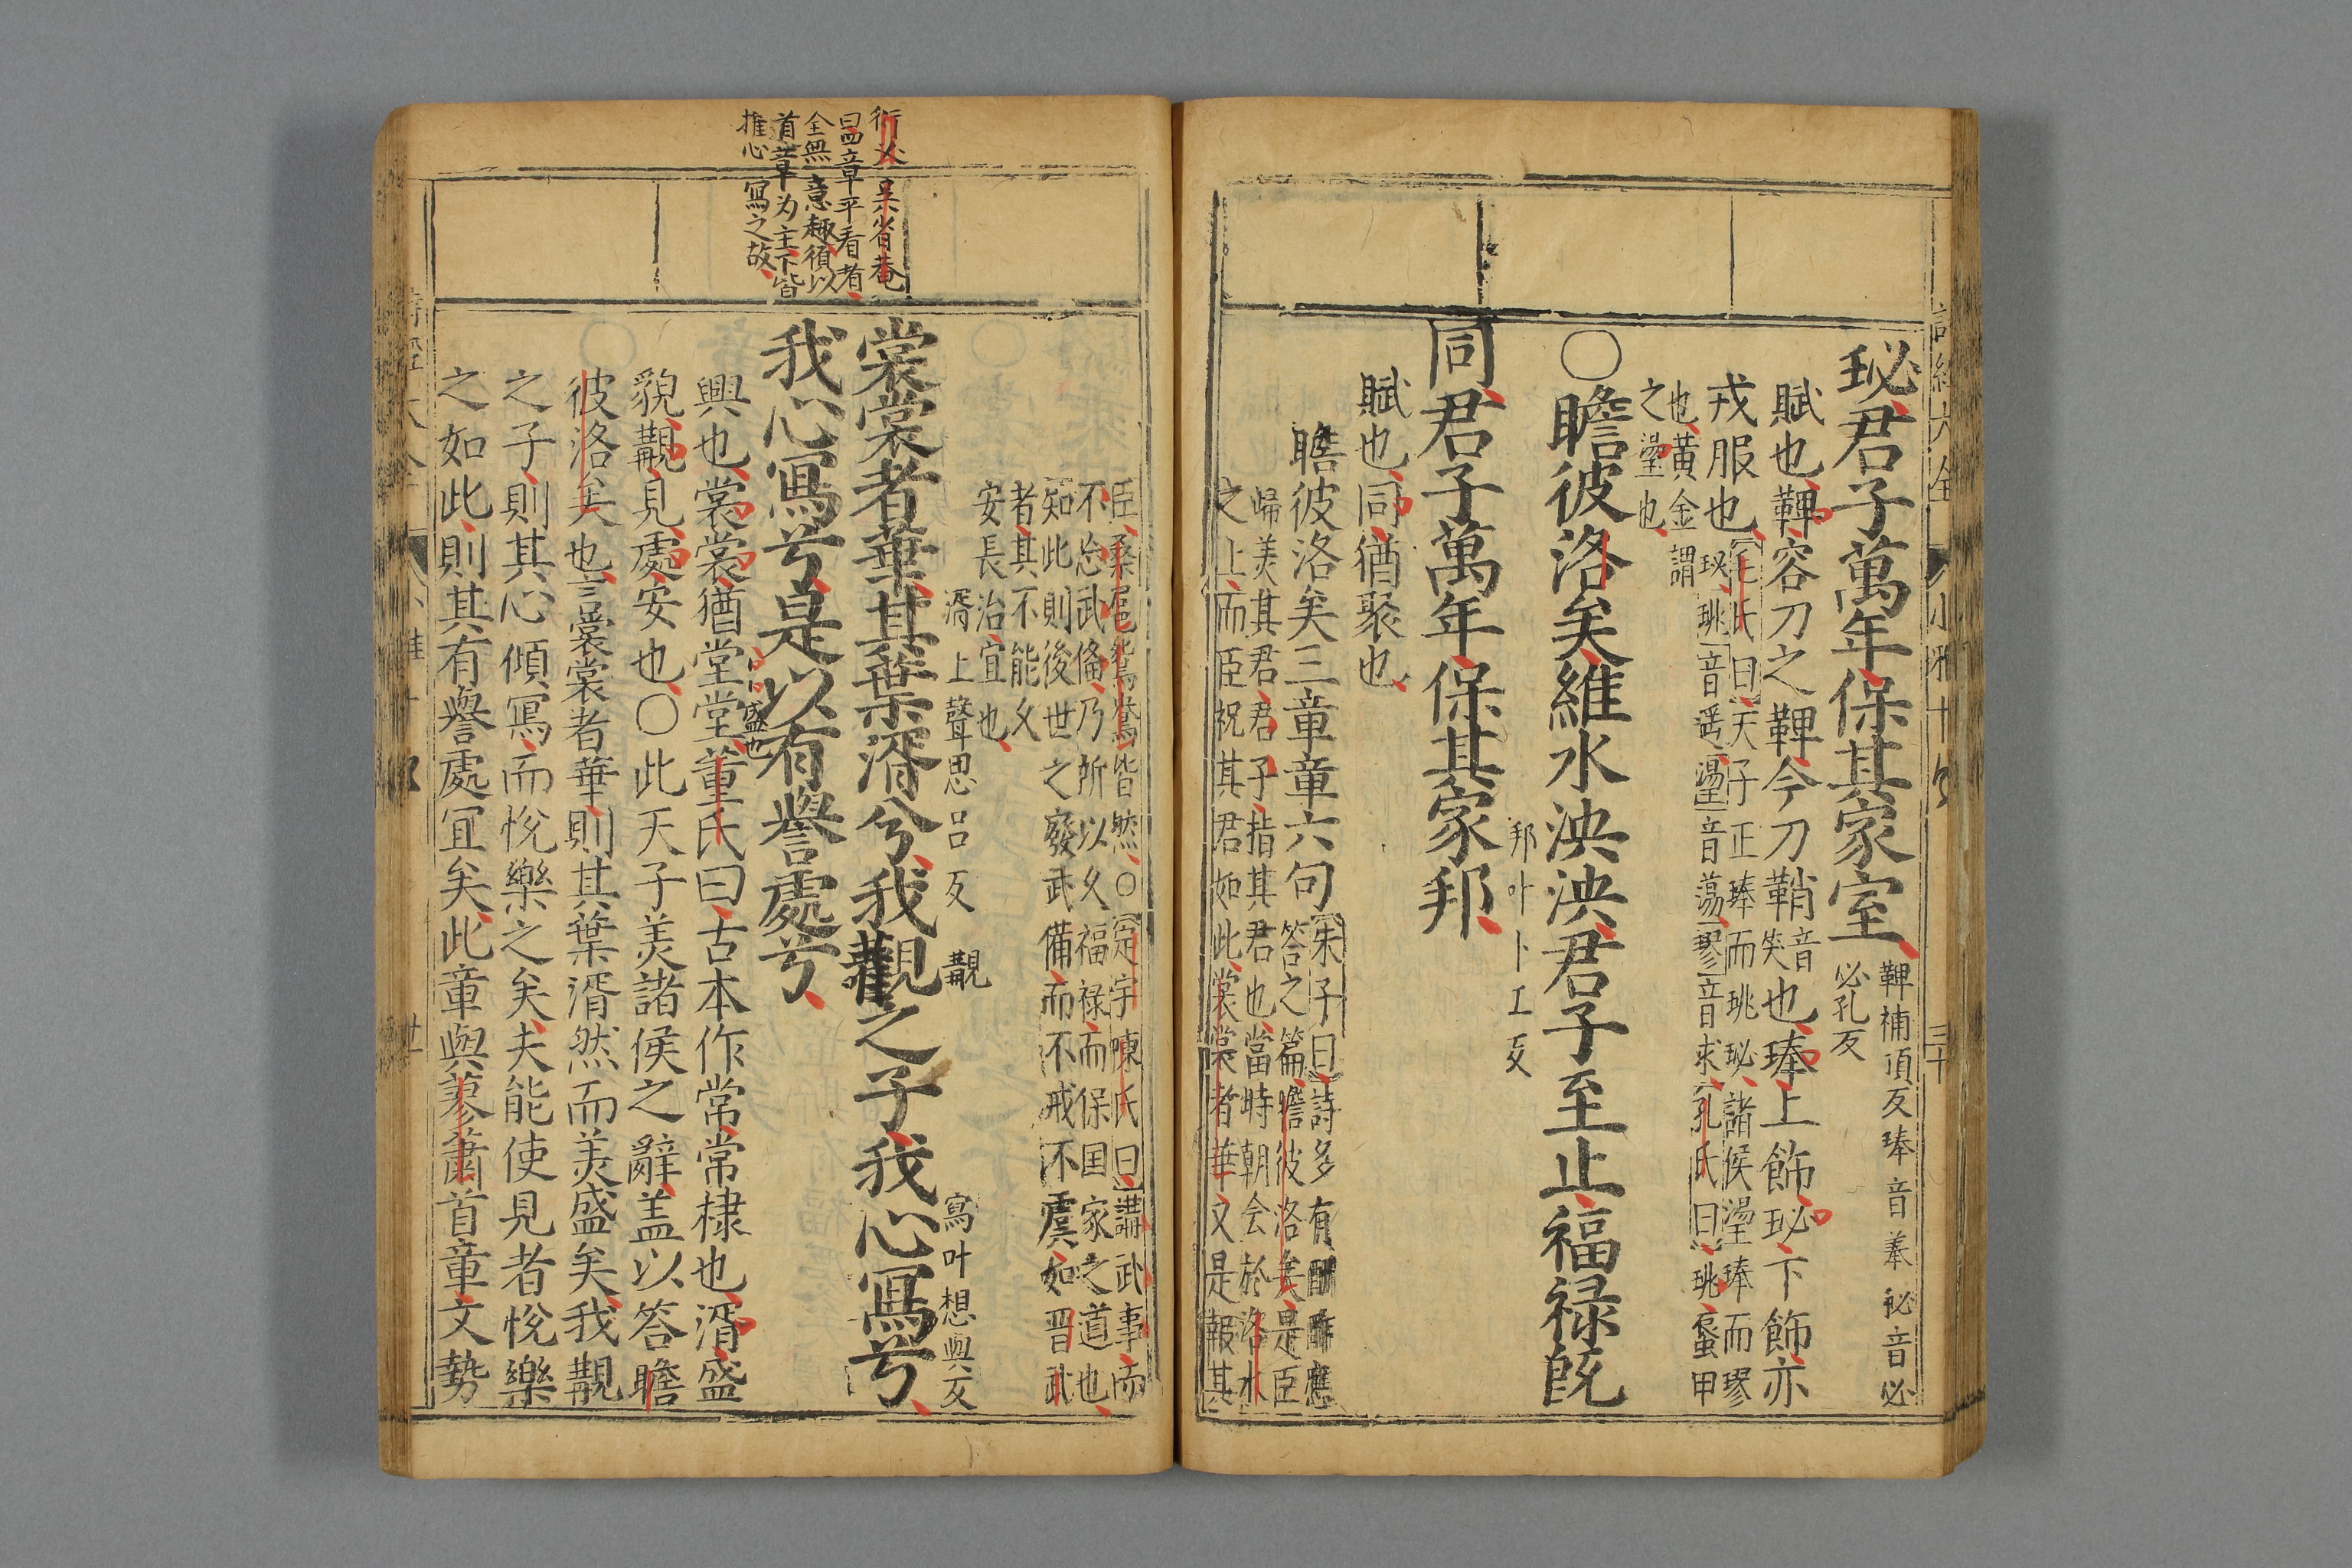 珌君子萬年保其家室
鞞補頂反琫音菶珌音必
必孔反
賦也鞞容刀之鞞今刀鞘
音
笑
也琫上飾珌下飾亦
戎服也
毛氏曰天子玉琫而珧珌諸侯璗琫而璆
珌珧音遥璗音蕩璆音求孔氏曰珧蜃甲
也黃金謂
之璗也
○瞻彼洛矣維水泱泱君子至止福禄既
邦叶卜工反
同君子萬年保其家邦
賦也同猶聚也
瞻彼洛矣三章章六句
朱子曰詩多有酬酢應
答之篇瞻彼洛矣是臣
歸美其君君子指其君也當時朝会於洛水
之上而臣祝其君如此裳裳者華又是報其
臣桑扈鴛鴦皆然○定宇陳氏曰講武事而
不忘武俻乃所以久福禄而保国家之道也
知此則後世之廢武備而不戒不虞如晋武
者其不能久
安長治宜也
湑上聲思呂反 覯 寫叶想與反
裳裳者華其葉湑兮我覯之子我心寫兮
我心寫兮是以有譽處兮
興也裳裳猶堂堂
盛也
董氏曰古本作常常棣也湑盛
貌覯見處安也○此天子美諸侯之辭盖以答瞻
彼洛矣也言裳裳者華則其葉湑然而美盛矣我覯
之子則其心傾寫而悅樂之矣夫能使見者悅樂
之如此則其有譽處宜矣此章與蓼蕭首章文勢
衍义 吴省菴
曰四章平看者
全無意趣須以
首章为主下皆
推心寫之故